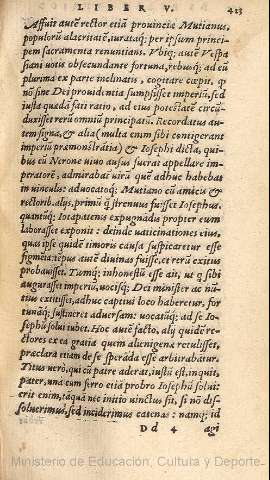 LIBER V. 423
Affuit autē rector etiā prouinciæ Mutianus,
populorū alacritatē, iurataq; per ipsum princi-
pem sacramenta renuntians. Vbiq; autē Vespa
siani uotis obsecundante fortuna, rebusq; ad eū
plurima ex parte inclinatis, cogitare cœpit, qꝫ
nō sine Dei prouidentia sumpsisset imperiū, sed
iusta quædā fati ratio, ad eius potestatē circū-
duxisset rerū omniū principatū. Recordatus au-
tem signa, & alia (multa enim sibi contigerant
imperiū præmōstrātia) & Iosephi dicta, qui-
bus eū Nerone uiuo ausus fuerat appellare im-
peratorē, admirabat uirū quē adhuc habebat
in uinculis: aduocatoq; Mutiano cū amicis &
rectorib. alijs, primū qꝫ strenuus fuisset Iosephus,
quantūq; Iotapatenis expugnādis propter eum
laborasset exponit: deinde uaticinationes eius,
quas ipse quidē timoris causa suspicaretur esse
figmēta: tēpus autē diuinas fuisse, et rerū exitus
probauisset. Tumq; inhonestū esse ait, ut q sibi
augurasset imperiū, uocisq; Dei minister ac nū-
tius extitisset, adhuc captiui loco haberetur, for
tunāq; sustineret aduersam: uocatūq; ad se Io-
sephū solui iubet. Hoc autē facto, alij quidē re-
ctores ex ea gratia quem alienigenæ retulisset,
præclara etiam de se sperāda esse arbitrabātur.
Titus uerò, qui cū patre aderat, iustū est, inquit,
pater, unà cum ferro etiā probro Iosephū solui:
erit enim, tāquā nec initio uinctus sit, si nō dis-
soluerimus, sed inciderimus catenas: namq; id
Dd 4 agi
Ministerio de Educación, Cultura y Deporte